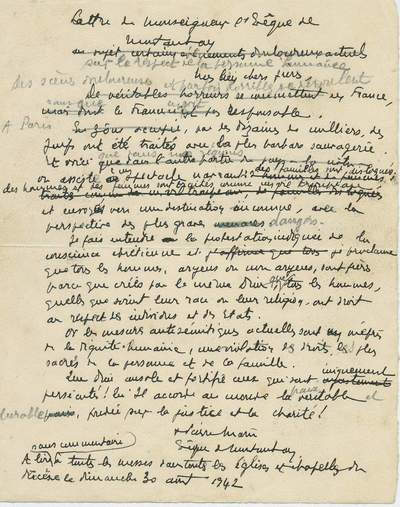 Lettre de Monseigneur l'Evêque de
Montauban
au sujet certains événements douloureux actuels
sur le respect de la personne humaine
Mes bien chers frères,
Des scènes douloureuses et parfois horribles se déroulent
De véritables horreurs se commettent en France,
sans que
mais dont la France n'est pas responsable.
A Paris
En zône occupée, par les dizaines de milliers, des
Juifs ont été traités avec la plus barbare sauvagerie.
Et voici que dans
on assiste au spectacle navrant : des familles sont disloquées;
des hommes et des femmes sont traités comme un vil troupeau
et envoyés vers une destination inconnue, avec la
perspective des plus graves menaces dangers.
Je fais entendre la protestation indignée de la
conscience chrétienne et j'affirme que tous je proclame
que tous les hommes, aryens ou non aryens, sont frères
parce que créés par le même Dieu; que tous les hommes,
quelle que soient leur race ou leur religion, ont droit
au respect des individus et des Etats.
Or les mesures antisémitiques actuelles sont un mépris
de la dignité humaine, une violation des droits les plus
sacrés de la personne et de la famille.
Que Dieu console et fortifie ceux qui sont iniquement
persécutés! Qu'Il accorde au monde la paix véritable et
durable, fondée sur la justice et la charité!
+ Pierre Marie
Evêque de Montauban
sans commentaire
A lire à toutes les messes dans toutes les Eglises et chapelles du
diocèse le dimanche 30 août 1942